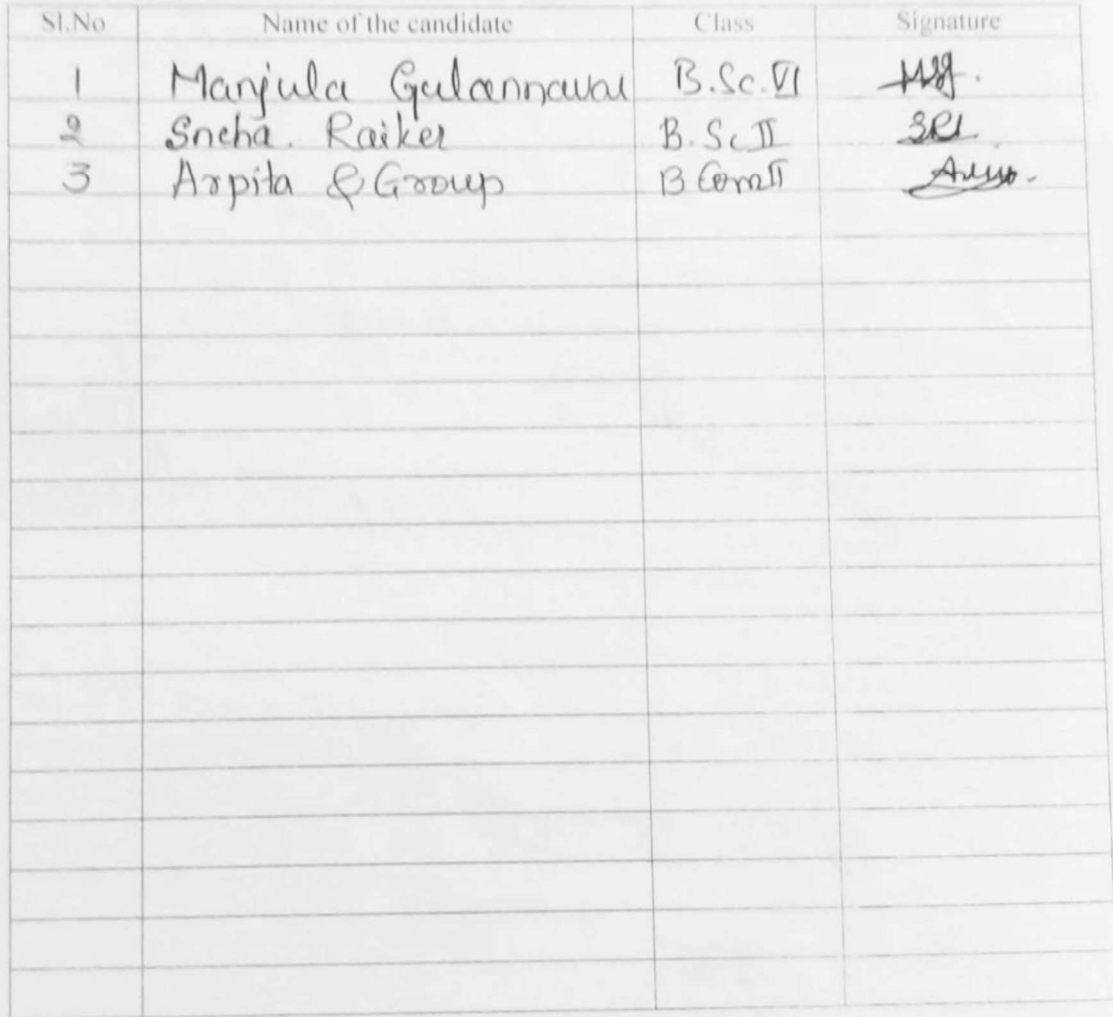 Sl.No Name of the candidate Class Signature
1 Manjula Gulannavar B.Sc.VI
2 Sneha. Raiker B.Sc II
3 Arpita & Group B Com II